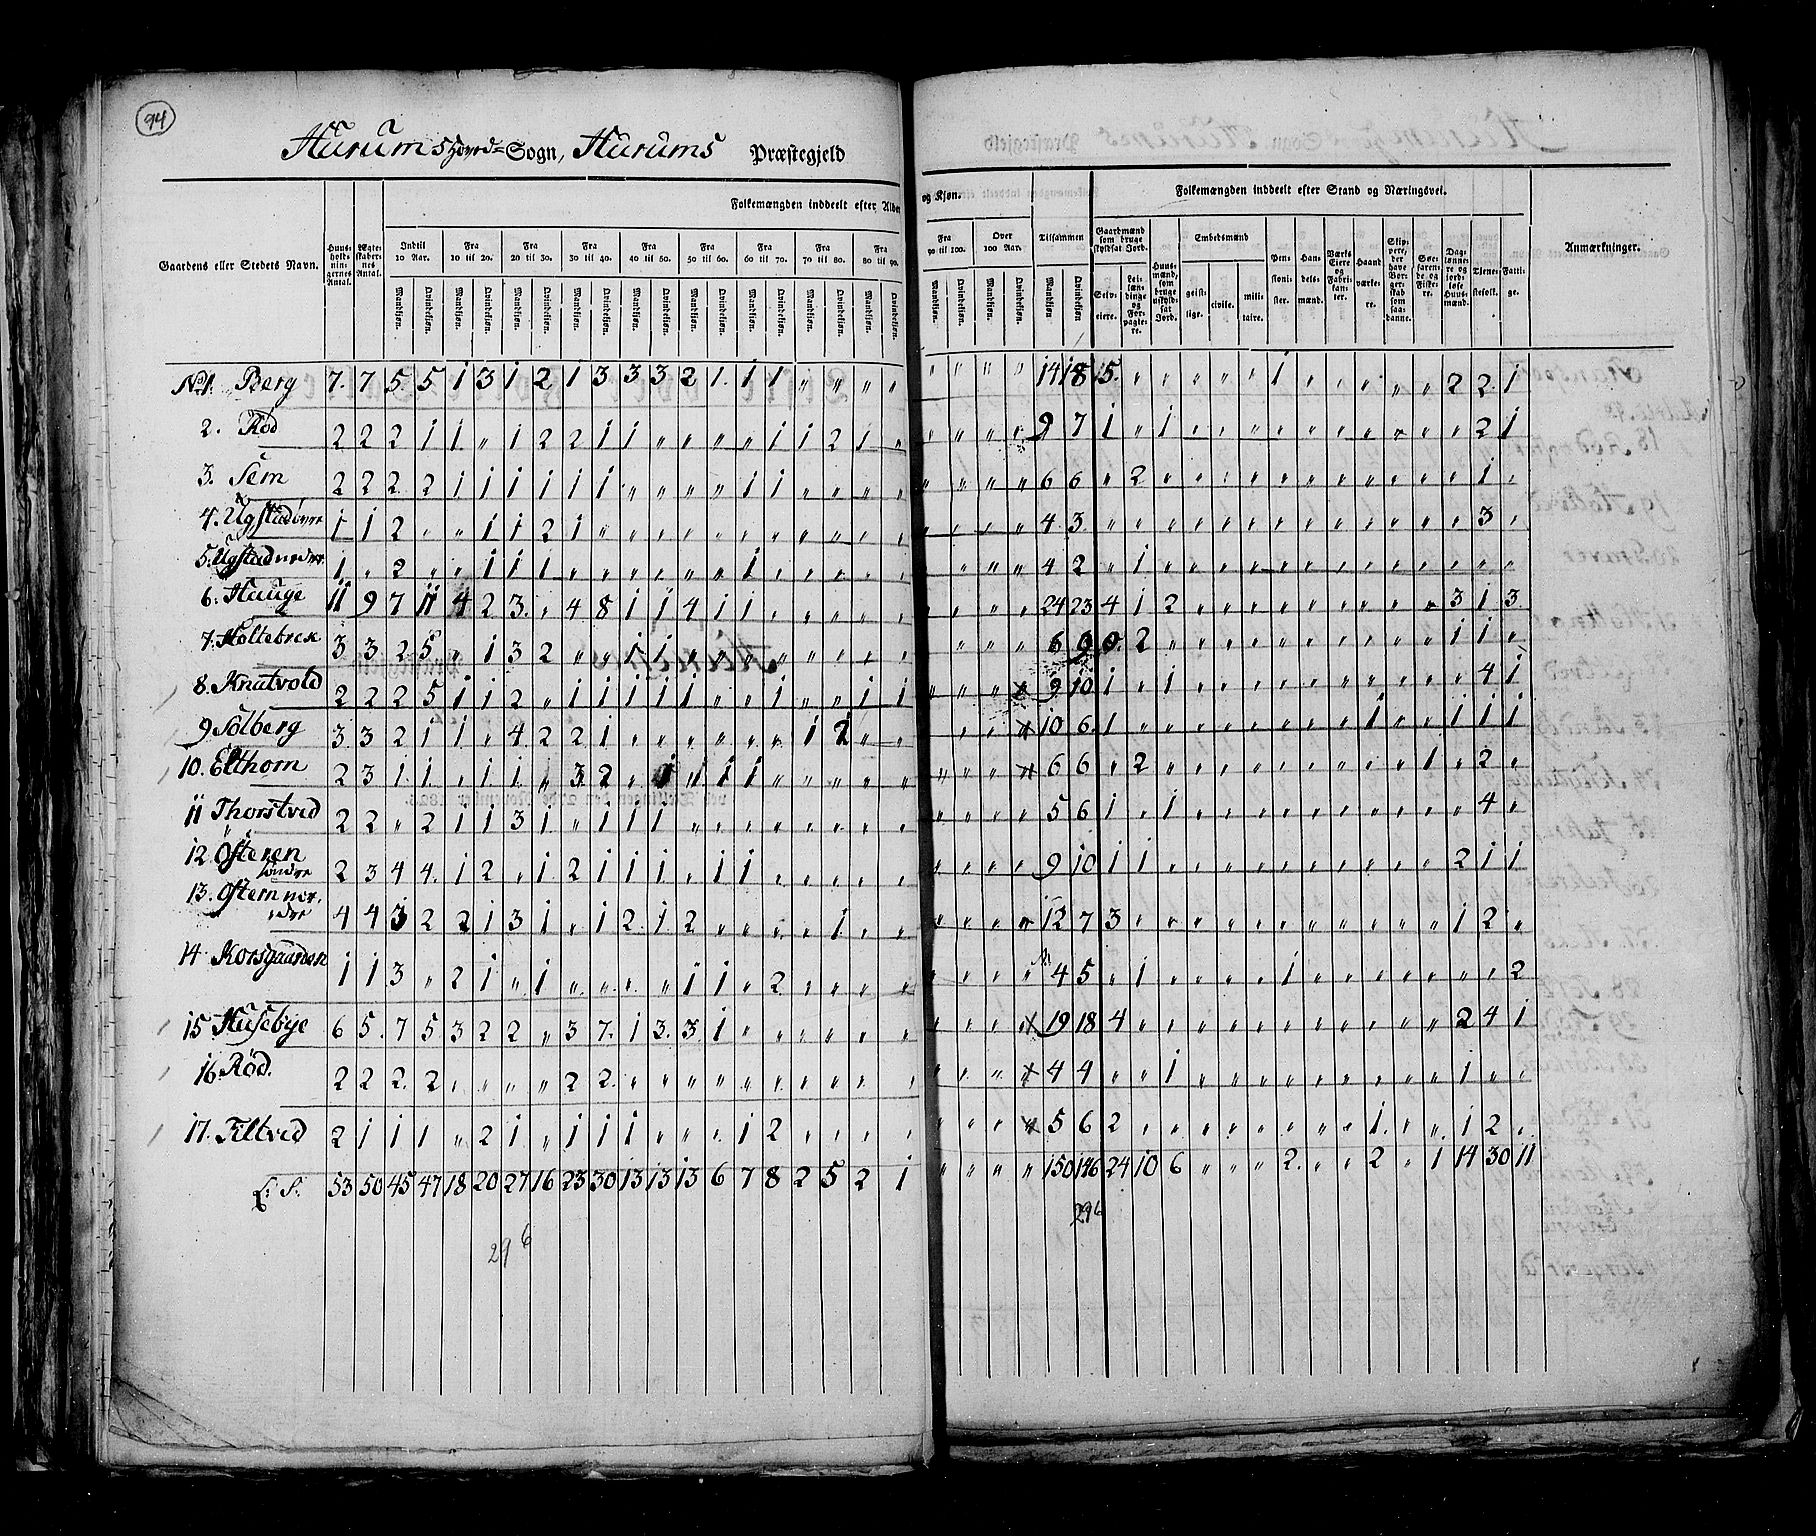 94
Hurums Hoved= Sogn, Hurums Præstegjeld
Gaardens eller Stedets Navn. Huusholdningernes Antal. Ægteskabernes Antal. Folkemængden inddeelt efter Alder og Kjøn. Tilsammen Folkemængden inddeelt efter Stand og Næringsvei. Anmærkninger.
Indtil 10 Aar. Fra 10 til 20. Fra 20 til 30. Fra 30 til 40. Fra 40 til 50. Fra 50 til 60. Fra 60 til 70. Fra 70 til 80. Fra 80 til 90. Fra 90 til 100. Over 100 Aar.
Gaardmænd som bruge skyldsat Jord. Huusmænd, som bruge uskyldsat Jord. Embedsmænd Pensionister. Handelsmænd. Værks Eiere og Fabrikanter. Haandværkere. Skippere, der have Borgerskab som saadanne. Søefarende og Fiskere. Daglønnere og jordløse Huusmænd. Tjenestefolk. Fattige.
Mandkjøn. Qvindekjøn. Mandkjøn. Qvindekjøn. Mandkjøn. Qvindekjøn. Mandkjøn. Qvindekjøn. Mandkjøn. Qvindekjøn. Mandkjøn. Qvindekjøn. Mandkjøn. Qvindekjøn. Mandkjøn. Qvindekjøn. Mandkjøn. Qvindekjøn. Mandkjøn. Qvindekjøn. Mandkjøn. Qvindekjøn. Mandkjøn. Qvindekjøn. Selveiere. Leilændinge og Forpagtere. geistlige. civile. militaire.
No 1. Berg 7. 7 5 5 1 3 1 2 1 3 3 3 2 1. 1 1 " " " " " " " " 14 18 5. " " " " " 1 " " " " " 2 2. 1
2. Röd 2 2 2 1 1. " 1 2 2 1 1 " " " " 1 1 2 1 " " " " " 9 7 1 " 1 " " " " " " " " " " 2 1
3. Sem 2 2 2 2 1 1 1 1 1 1 " " " " 1 1 " " " " " " " " 6 6 " 2 " " " " " " " " " " " 1 "
4. Ugstad övre 1 1 2 " " 1 1 2 1 " " " " " " " " " " " " " " " 4 3 " " " " " " " " " " " " " 3 "
5. Ugstad nedre 1 " 2 " " 1 1 1 " " " " " " 1 " " " " " " " " 4 2 " 1 " " " " " " " " " " " " "
6. Hauge 11 9 7 11 4 2 3. " 4 8 1 1 4 1 1 " " " " " " " " 24 23 4 1 2 " " " " " " " " " 3 1 3
7. Holtebrek 3 3 2 5 " 1 3 2 " " 1 1 " " " " " " " " " " " 6 9 0. 2 " " " " " " " " " " 1 1 "
8. Knatvold 2 2 2 5 1 1 2 " 1 1 1 1 1 " " 1 " " 1 1 " " " " 9 10 1 " 1 " " " " " " " " " " 4 1
9. Solberg 3 3 2 1 1 " 4 2 2 1 " " " " " " 1 2 " " " " " 10 6 1 " " " " " " " " 1 " " 1 1 1
10. Elthorn 2 3 1 1 " 1 1 " 3 2 " 1 1 1 1 " " " " " " " " 6 6 " 2 " " " " " " " " " 1 " 2 "
11 Thorstved 2 2 " 2 1 1 3 1 " 1 1 1 " " " " " " " " " " " 5 6 1 " 1 " " " " " " " " " " 4 "
12 Österen söndre 2 3 4 4. 1 2 " 1 2 1 1 1 " 1 1 " " " " " " " " " 9 10 1 1 " " " " " " " " " " 2 1 1
13. Östern nordre 4 4 3 2 2 1 3 1 " 1 2 1 2 " " " " 1 " " " " " " 12 7 3 " " " " " " " " " " " 1 2 "
14 Korsgaarden 1 1 3 " 2 1 " 1 " " " " 1 1 " 2 " " " " " " " " 4 5 " 1 " " " " 1 " " " " " " " 2
15 Husebye 6 5 7 5 3 2 2 " 3 7 1 3 3 1 " " " " " " " " " 19 18 4 " " " " " " " " " " " 2 4 1
16 Röd. 2 2 2 2 " " " " 2 2 " " " " " " " " " " " " " 4 4 " " 1 " " " " " " " " " 1 " "
17. Filtved 2 1 1 1 " 2 1 " 1 1 1 " " " 1 2 " " " " " " " " 5 6 2 " " " " " " " " 1 " " 1 2 "
L. S. 53 50 45 47 18 20 27 16 23 30 13 13 13 6 7 8 2 5 2 1 " " " " 150 146 24 10 6 " " " 2 " " 2 " 1 14 30 11
296 296